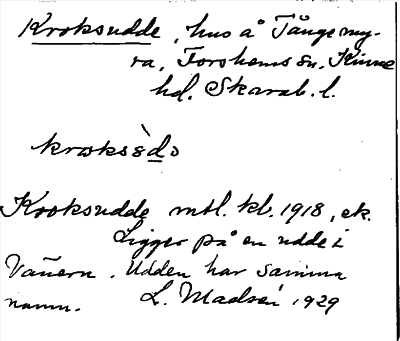 Kroksudde, hus å Tångemy-
ra, Forshems sn. Kinne
hd. Skarab. l.
Kroksudde mtl. kl. 1918, ek.
Ligger på en udde i
Vänern. Udden har samma
namn. L. Madsén 1929